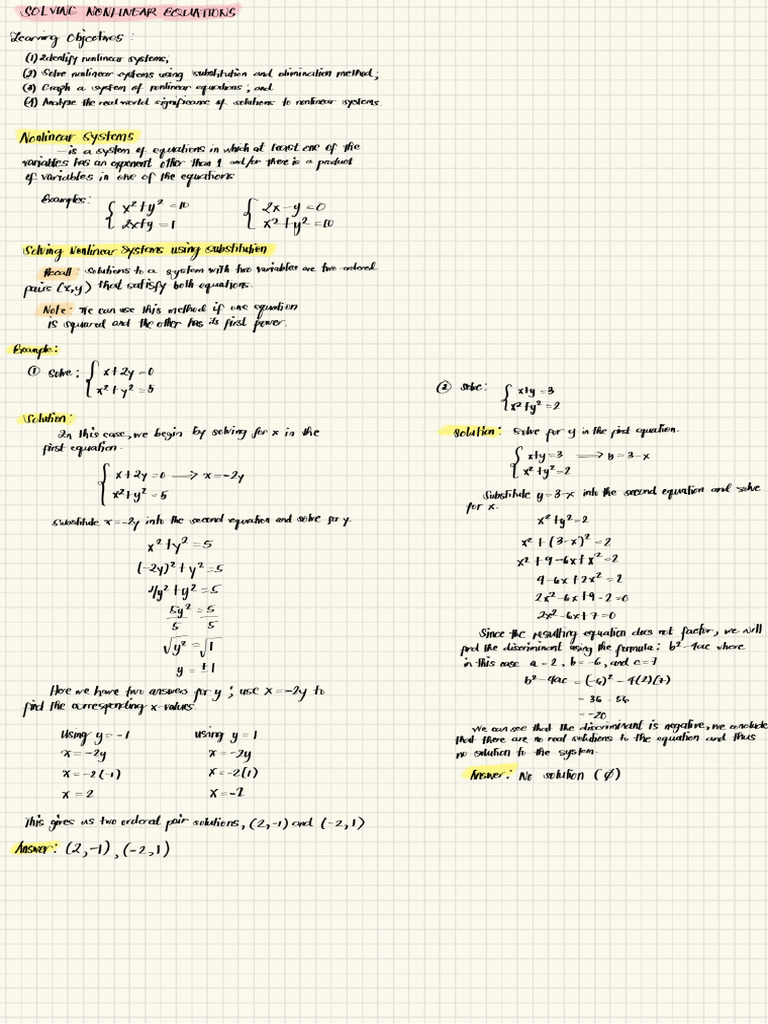 SOLVING NONLINEAR EQUATIONS
Learning Objectives :
(1) Identify nonlinear systems;
(2) Solve nonlinear systems using substitution and elimination method;
(3) Graph a system of nonlinear equations ; and
(4) Analyze the real world significance of solutions to nonlinear systems.
Nonlinear Systems
– is a system of equations in which at least one of the
variables has an exponent other than 1 and/or there is a product
of variables in one of the equations
Examples:
{ x² + y² = 10
2x + y = 1
{ 2x – y = 0
x² + y² = 10
Solving Nonlinear Systems using substitution
Recall : Solutions to a system with two variables are two ordered
pairs (x,y) that satisfy both equations.
Note : We can use this method if one equation
is squared and the other has its first power.
Example:
① Solve : { x + 2y = 0
x² + y² = 5
Solution:
In this case, we begin by solving for x in the
first equation.
{ x + 2y = 0 → x = -2y
x² + y² = 5
Substitute x = -2y into the second equation and solve for y.
x² + y² = 5
(-2y)² + y² = 5
4y² + y² = 5
5y² = 5
5 5
√y² = √1
y = ±1
Here we have two answers for y ; use x = -2y to
find the corresponding x-values
Using y = -1
x = -2y
x = -2(-1)
x = 2
using y = 1
x = -2y
x = -2(1)
x = -2
This gives us two ordered pair solutions, (2,-1) and (-2,1)
Answer: (2,-1) , (-2,1)
② Solve: { x+y = 3
x² + y² = 2
Solution: Solve for y in the first equation.
{ x+y = 3 → y = 3-x
x² + y² = 2
Substitute y = 3-x into the second equation and solve
for x.
x² + y² = 2
x² + (3-x)² = 2
x² + 9 - 6x + x² = 2
9 - 6x + 2x² = 2
2x² - 6x + 9 - 2 = 0
2x² - 6x + 7 = 0
Since the resulting equation does not factor, we will
find the discriminant using the formula : b² - 4ac where
in this case a = 2, b = -6, and c = 7
b² - 4ac = (-6)² - 4(2)(7)
= 36 - 56
= -20
We can see that the discriminant is negative, we conclude
that there are no real solutions to the equation and thus
no solution to the system.
Answer: No solution (∅)